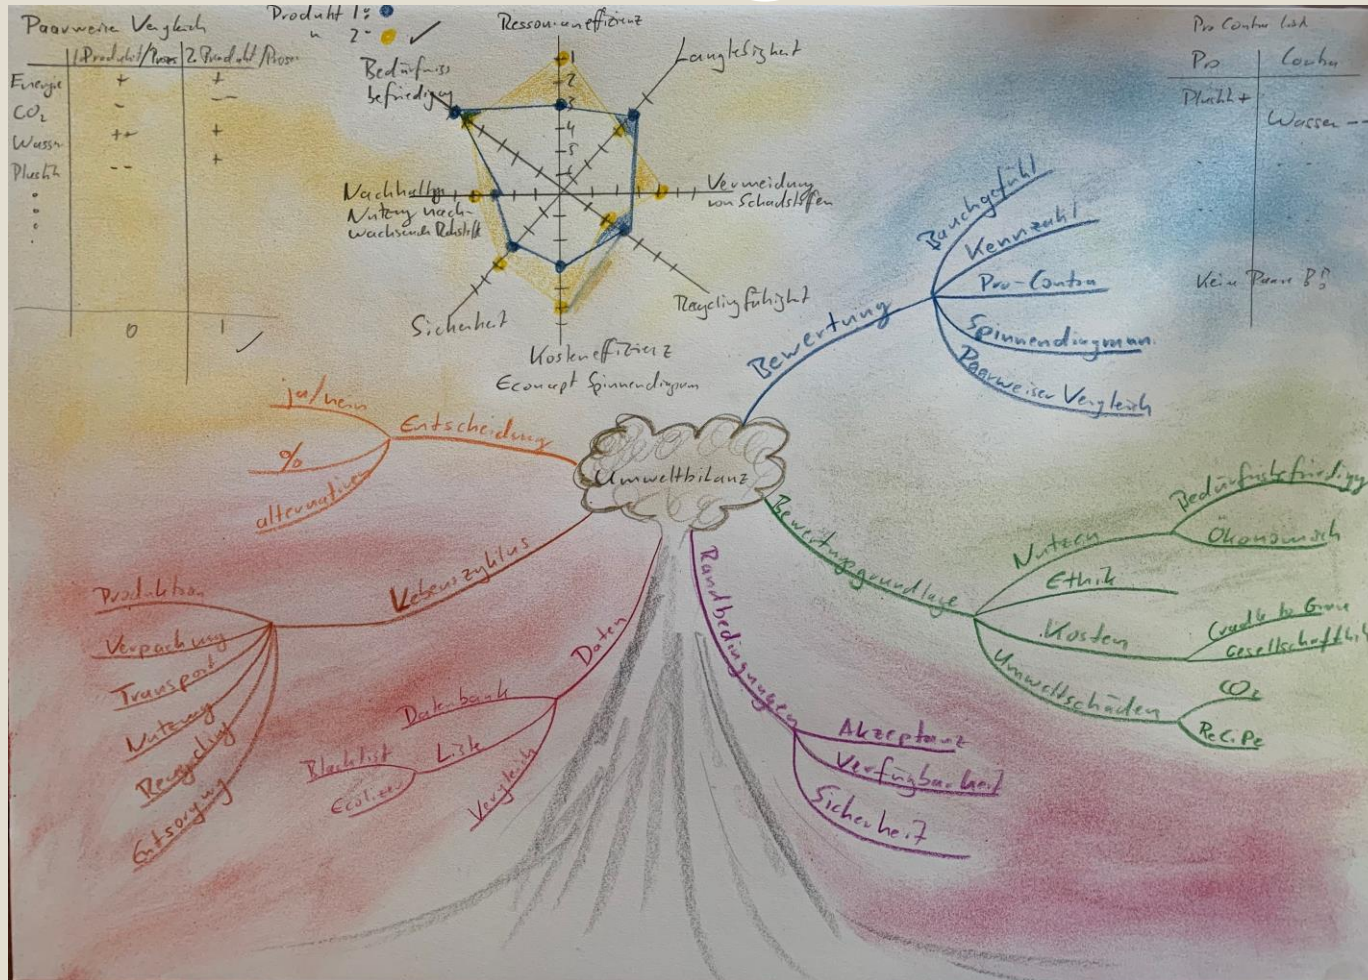 Paarweise Vergleich
1. Produkt/Prozess 2. Produkt/Prozess
Energie + +
CO₂ - --
Wasser ++ +
-- +
0 1 ✓
Produkt 1:
" 2- ✓
Ressourceneffizienz
Langlebigkeit
Bedürfniss
befriedigung
1
2
3
4
5
Vermeidung
von Schadstoffen
Nachhaltige
Nutzung nach-
wachsende Rohstoffe
Recyclingfähigkeit
Sicherheit
Kosteneffizienz
Econcept Spinnendiagram
Pro Contra List
Pro Contra
Wasser --
Kein
Umweltbilanz
Bewertung
Bauchgefühl
Kennzahl
Pro-Contra
Spinnendiagramm
Paarweiser Vergleich
Bewertungsgrundlage
Nutzen
Bedürfnisbefriedigung
Ökonomisch
Ethik
Kosten
Cradle to Grave
Gesellschaftlich
Umweltschäden
CO₂
ReCiPe
Randbedingungen
Akzeptanz
Verfügbarkeit
Sicherheit
Daten
Datenbank
Liste
Blacklist
Ecolizer
Vergleich
Lebenszyklus
Produktion
Verpackung
Transport
Nutzung
Recycling
Entsorgung
Entscheidung
ja/nein
%
alternativen